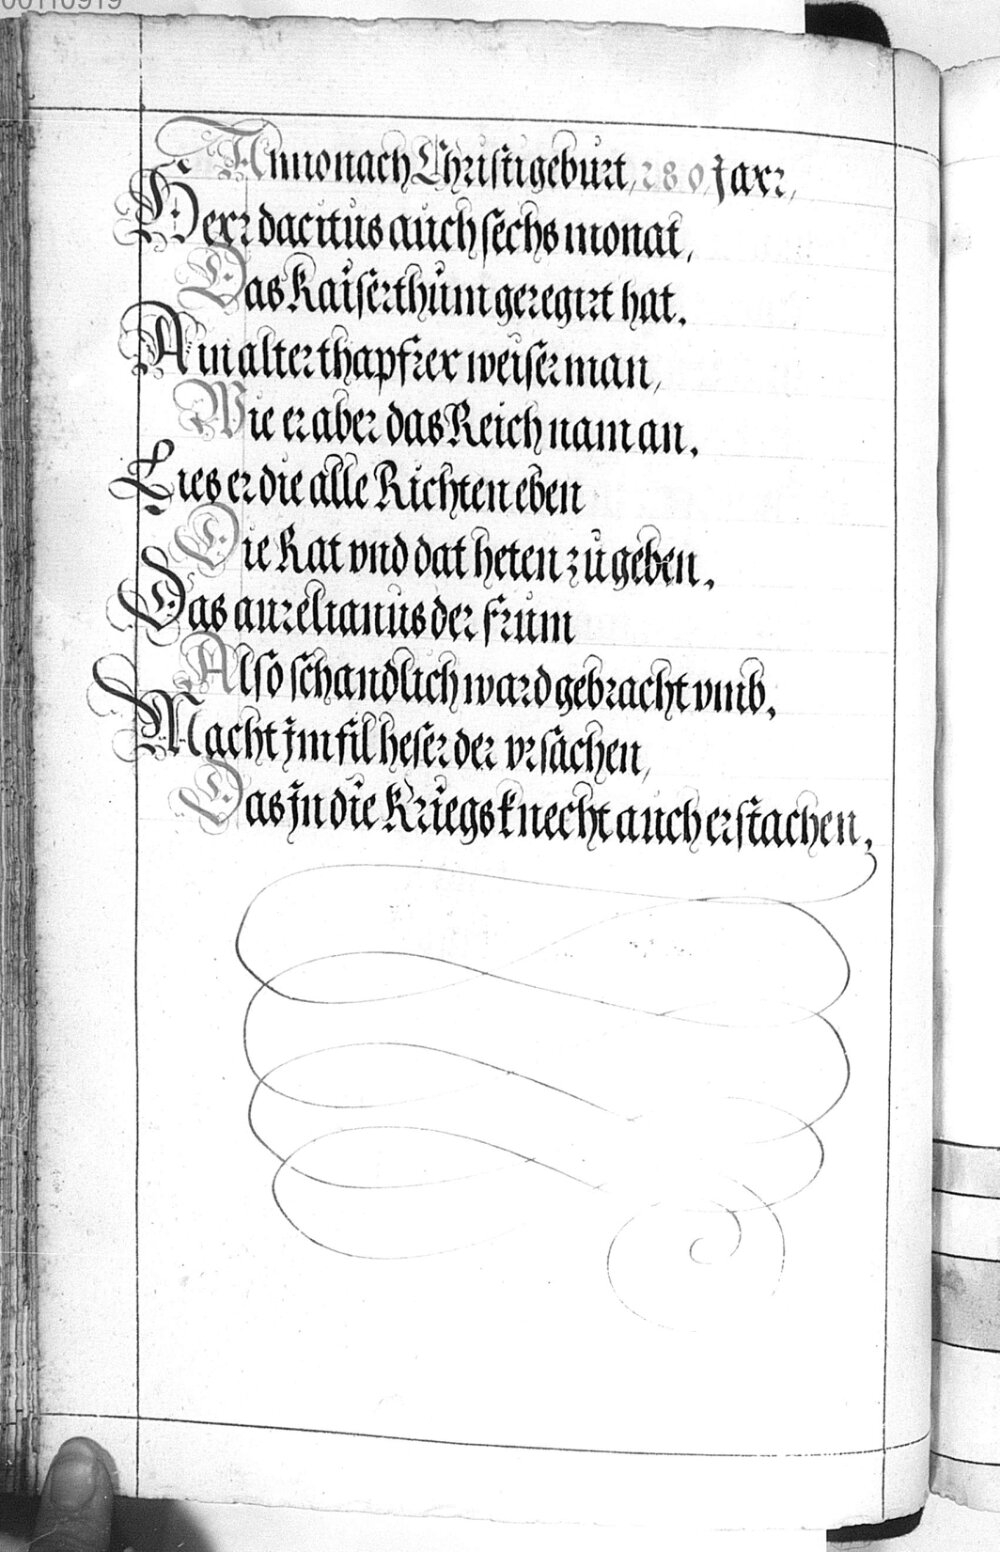 00110919
Anno nach Christi geburt, 280 Jar,
Herr dacitus auch sechs monat,
Das Kaiserthum geregirt hat.
Ain alter thapfrer weiser man,
Wie er aber das Reich nam an.
Lies er die alle Richten eben
Die Rat vnd dat heten zu geben.
Das aurelianus der frum
Also schandlich ward gebracht vmb.
Macht jm fil heser der vrsachen,
Das jn die Kriegsknecht auch erstachen.